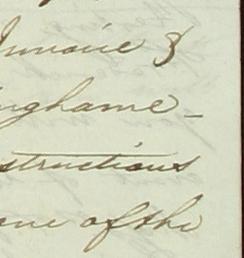 &
inghame -
structions
one of the